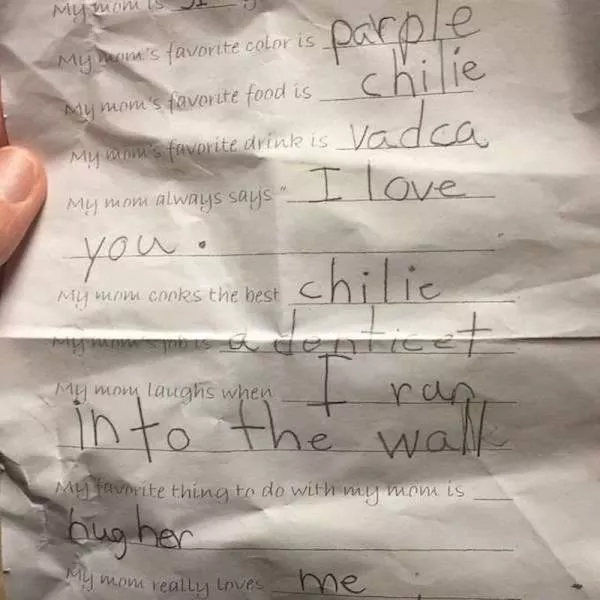 My mom is
My mom's favorite color is parple
My mom's favorite food is chilie
My mom's favorite drink is vadca
My mom always says " I love
you.
My mom cooks the best chilie
My mom's job is a denticet
My mom laughs when I ran
into the wall
My favorite thing to do with my mom is
hug her
My mom really loves me.